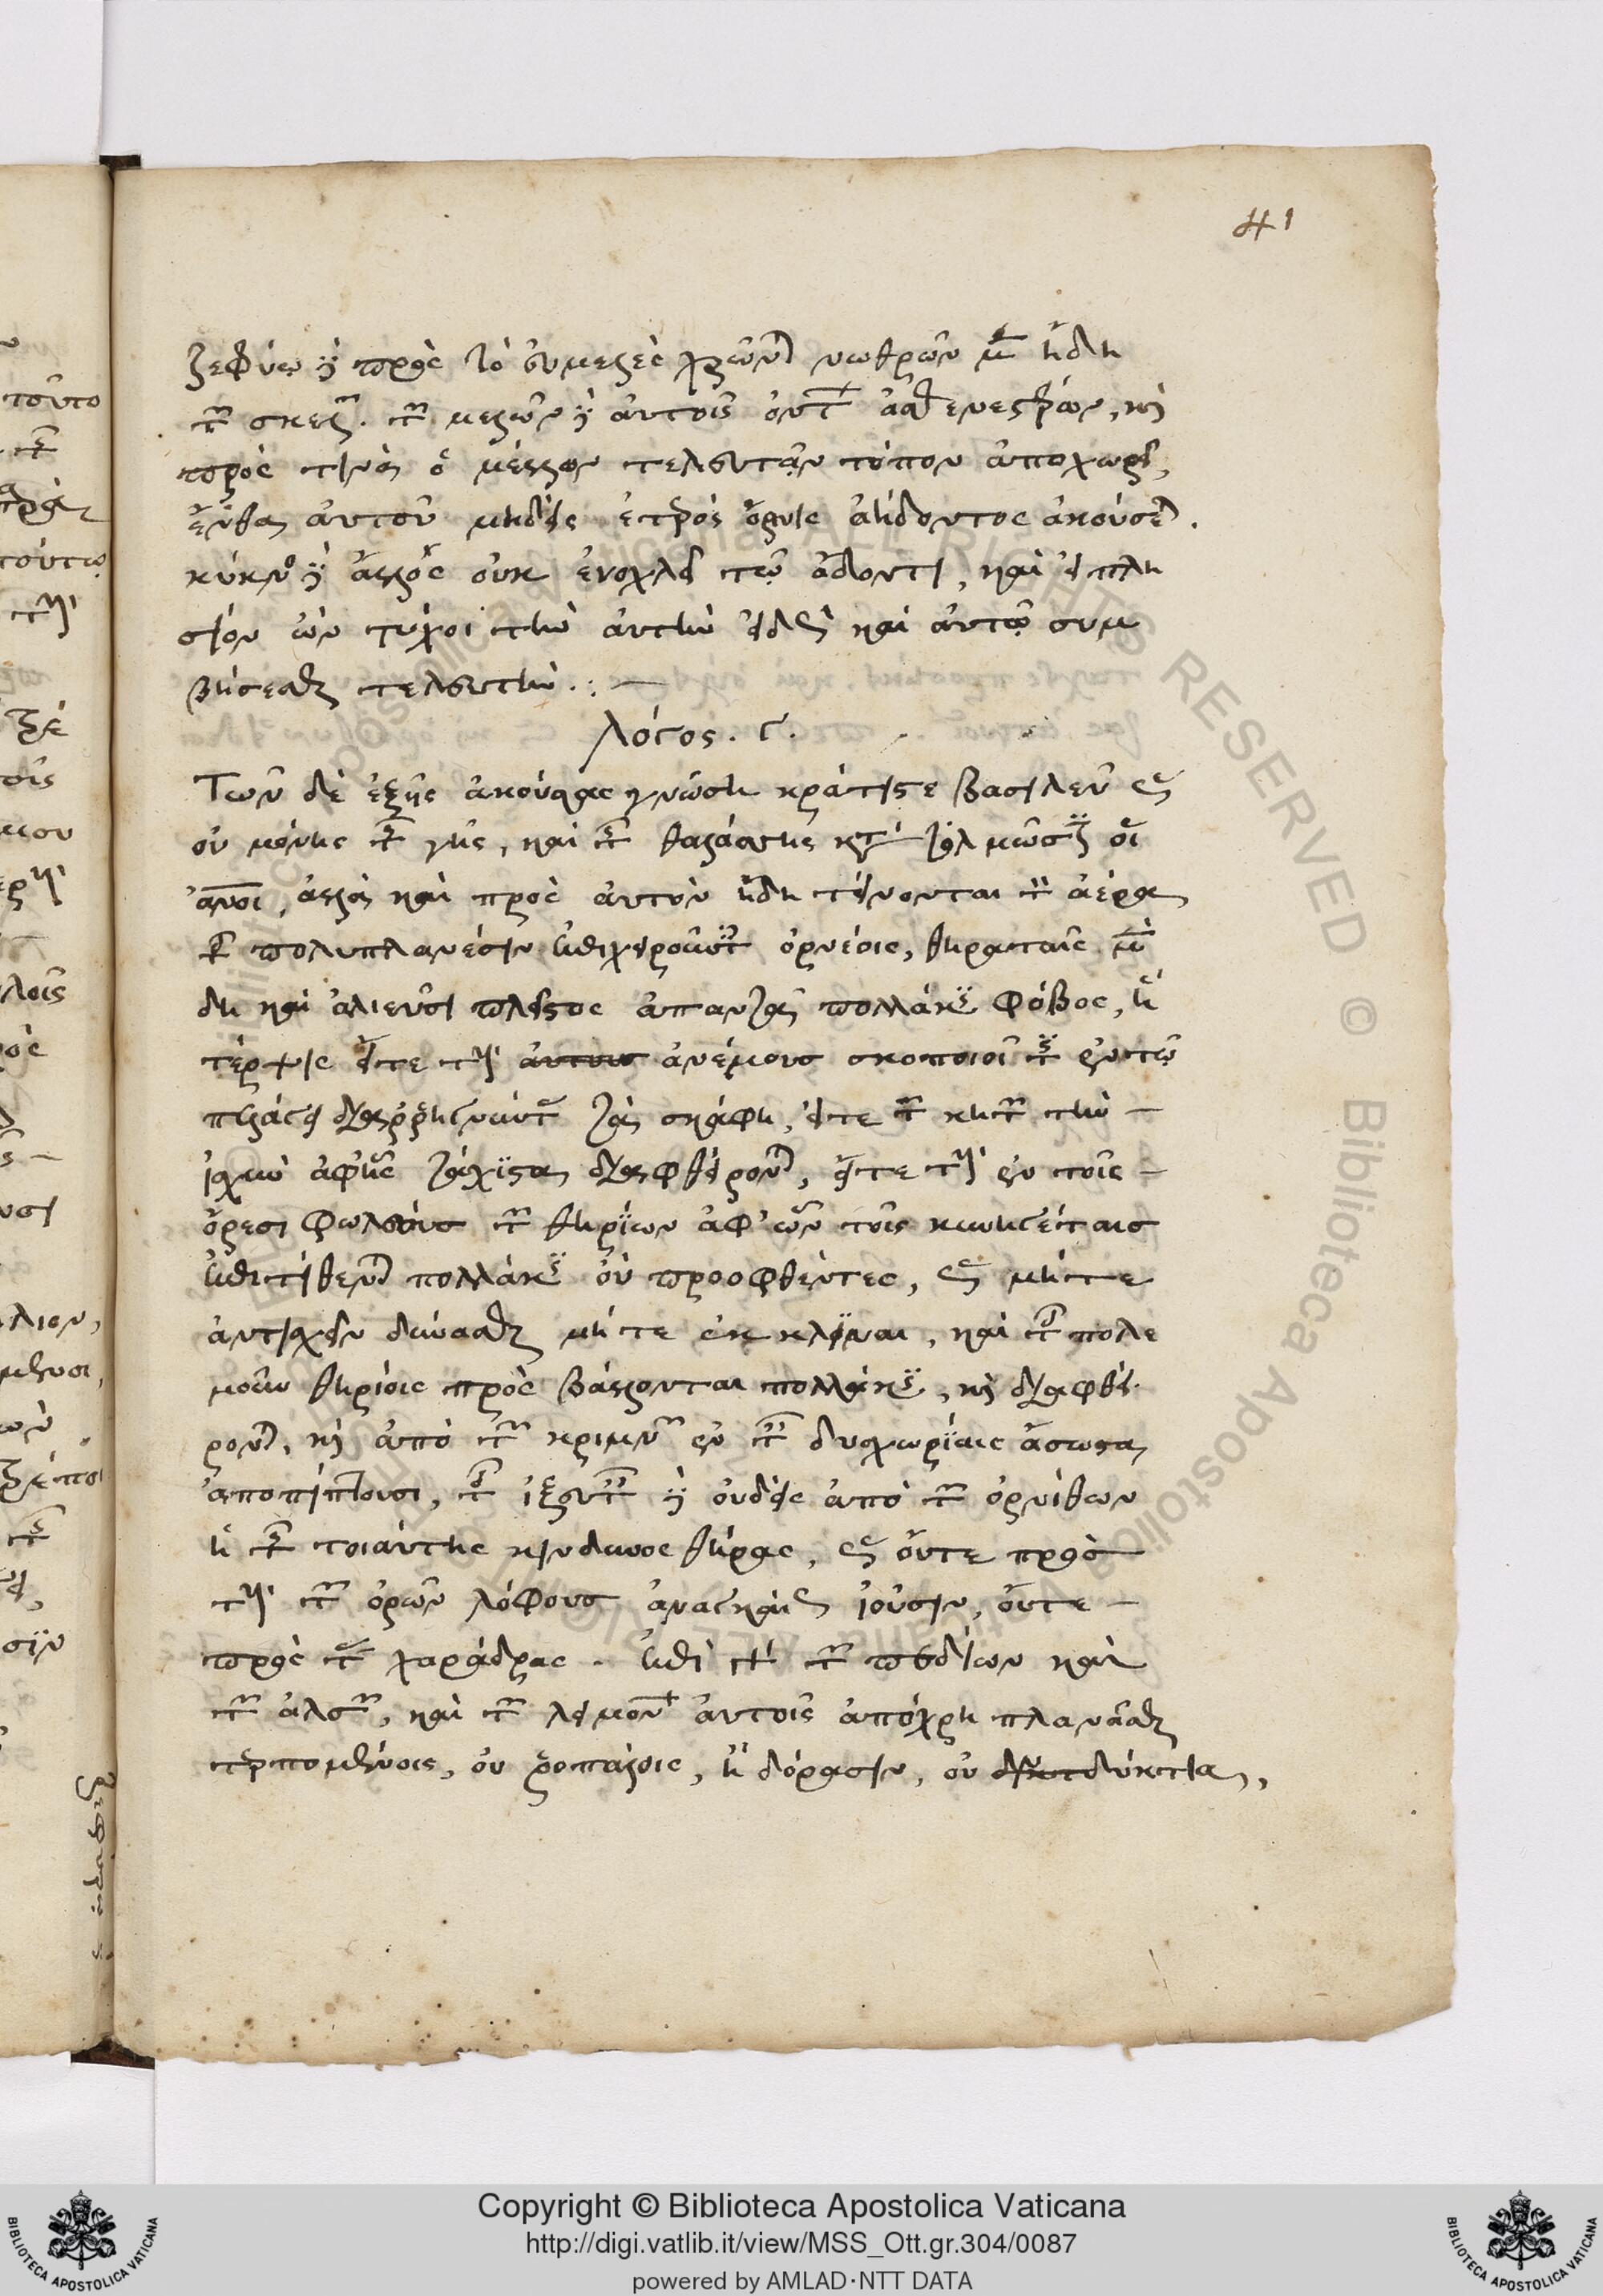 41
ζεφύρῳ δὲ πρὸς τὸ εὐμελὲς χρῶνται νωθρῶν μὲν ἤδη
τῶν σκελῶν. τῶν μελῶν δὲ αὐτοῖς ὄντων ἀσθενεστέρων, καὶ
πρός τινα ὁ μέλλων τελευτᾶν τόπον ἀποχωρεῖ,
ἔνθα αὐτοῦ μηδεὶς ἕτερος ὄρνις ἀήδοντος ἀκούσεται.
κύκνος δὲ ἄλλος οὐκ ἐνοχλεῖ τῷ ᾄδοντι, καὶ εἰ πλη
σίον ὢν τύχοι τὴν αὐτὴν εἰδὼς καὶ αὐτῷ συμ
βήσεσθαι τελευτήν.:—
λόγος. γ.
Τῶν δὲ ἑξῆς ἀκούσας γνώσῃ κράτιστε βασιλεῦ ὡς
οὐ μόνης τῆς γῆς, καὶ τῆς θαλάσσης κατατολμῶσιν οἱ
ἄνοι, ἀλλὰ καὶ πρὸς αὐτὸν ἤδη τείνονται τὸν ἀέρα
τοῖς πολυπλανέσιν ἐπιχειροῦντες ὀρνέοις, θηραταῖς μὲν
δὴ καὶ ἁλιεῦσι πλεῖστος ἀπαντᾷ πολλάκις φόβος, ἢ
τέρψις εἴτε τοὺς ἀνέμους σκοποίοι τοὺς ἐν τῷ
πελάγει διαρρηγνύντας τὰ σκάφη, εἴτε τῶν κητῶν τὴν
ἰσχὺν ἀφ' ἧς τάχιστα διαφθείρονται, εἴτε τοὺς ἐν τοῖς
ὄρεσι φωλεοὺς τῶν θηρίων ἀφ' ὧν τοῖς κυνηγέταις
ἐπιτίθενται πολλάκις οὐ προοφθέντες, ὡς μήτε
ἀντισχεῖν δύνασθαι μήτε ἐκκλῖναι, καὶ τοῖς πολε
μοῦν θηρίοις προσβάλλονται πολλάκις, καὶ διαφθεί
ρονται, καὶ ἀπὸ τῶν κρημνῶν ἐν ταῖς δυσχωρίαις ἄσωστα
ἀποπίπτουσι, τοῖς ἰξευταῖς δὲ οὐδεὶς ἀπὸ τῶν ὀρνίθων
ἢ τῆς τοιαύτης κίνδυνος θήρας, ὡς οὔτε πρὸς
τοὺς τῶν ὀρῶν λόφους ἀναγκαίως ἰοῦσιν, οὔτε
πρὸς τὰς χαράδρας. ἐπὶ δὲ τῶν πεδίων καὶ
τῶν ἀλσῶν, καὶ τῶν λειμώνων αὐτοῖς ἀπόχρη πλανᾶσθαι
τερπομένοις, οὐ ῥοπάλοις, ἢ δόρασιν, οὐ δίκτυα,
Copyright © Biblioteca Apostolica Vaticana
http://digi.vatlib.it/view/MSS_Ott.gr.304/0087
powered by AMLAD·NTT DATA